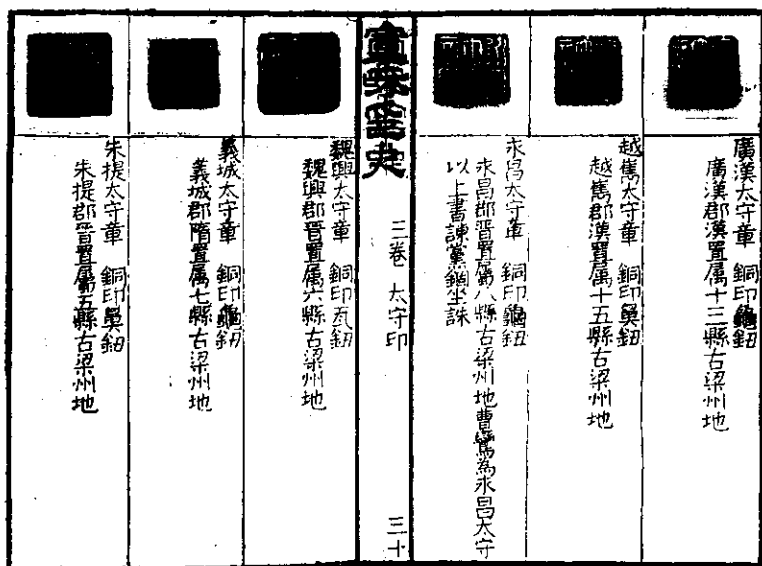 廣漢太守章　銅印龜鈕
廣漢郡漢置属十三縣古梁州地
越嶲太守章　銅印鼻鈕
越嶲郡漢置属十五縣古梁州地
永昌太守章　銅印龜鈕
永昌郡晋置属八縣古梁州地曹鸞為永昌太守
以上書諌黨錮坐誅
三卷　太守印
三十
魏興太守章　銅印瓦鈕
魏興郡晋置属六縣古梁州地
義城太守章　銅印龜鈕
義城郡隋置属七縣古梁州地
朱提太守章　銅印鼻鈕
朱提郡晋置属五縣古梁州地